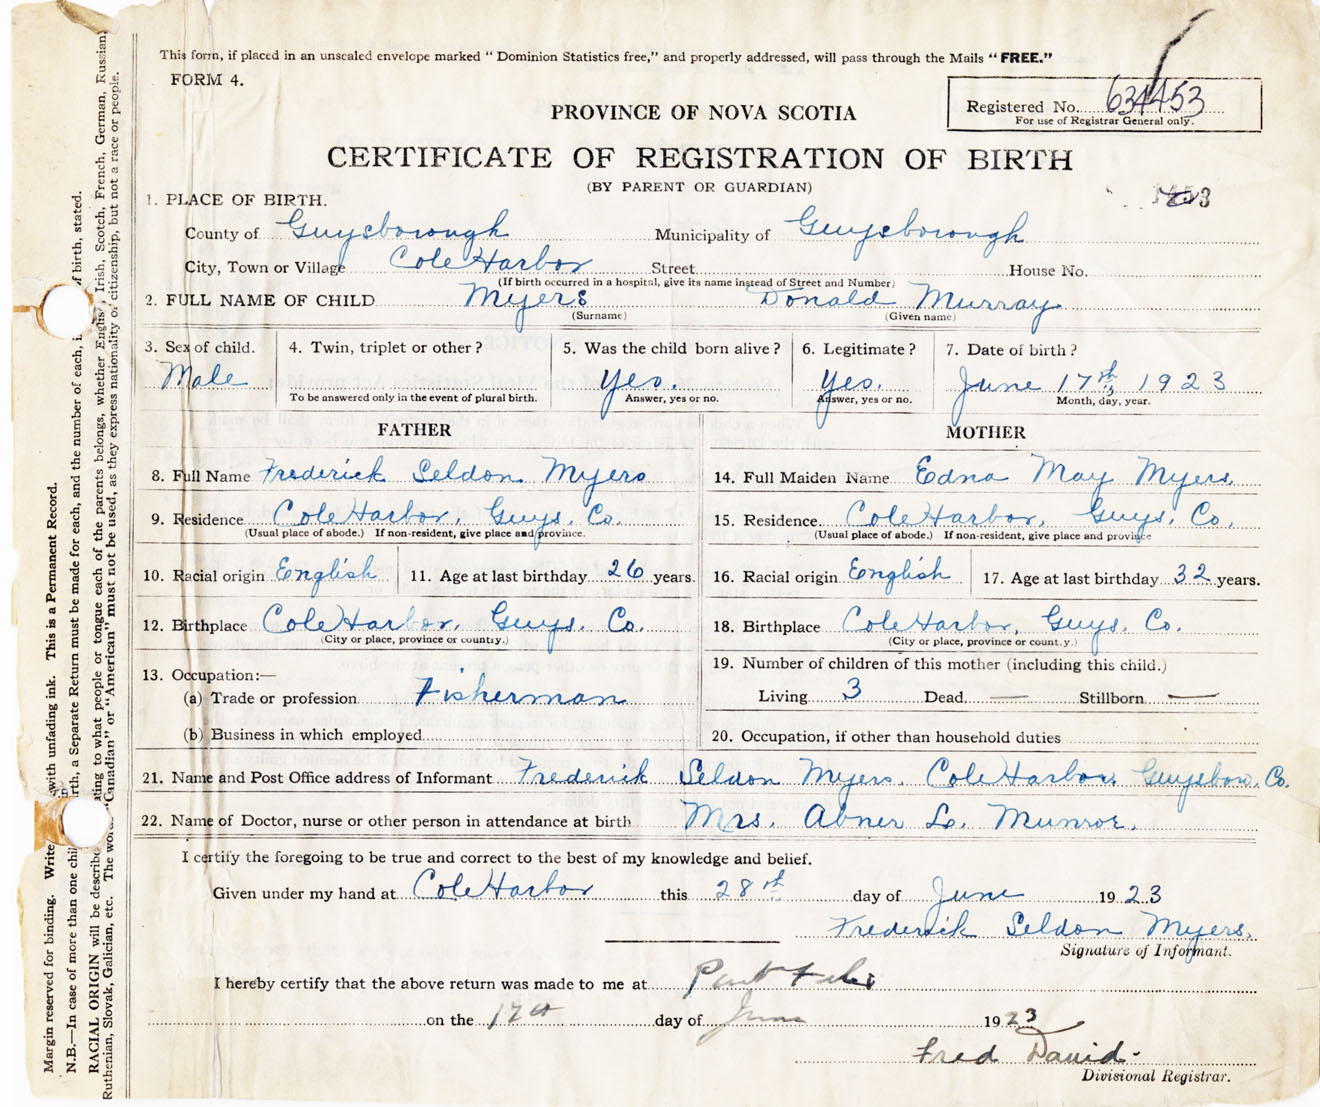 This form, if placed in an unsealed envelope marked " Dominion Statistics free," and properly addressed, will pass through the Mails "FREE."
FORM 4.
Registered No. 634453
For use of Registrar General only.
PROVINCE OF NOVA SCOTIA
CERTIFICATE OF REGISTRATION OF BIRTH
(BY PARENT OR GUARDIAN)
1. PLACE OF BIRTH.
County of Guysborough Municipality of Guysborough
City, Town or Village Cole Harbor Street House No.
(If birth occurred in a hospital, give its name instead of Street and Number)
2. FULL NAME OF CHILD Myers Donald Murray
(Surname) (Given name)
3. Sex of child. 4. Twin, triplet or other? 5. Was the child born alive? 6. Legitimate? 7. Date of birth?
Male Yes. Yes. June 17th 1923
To be answered only in the event of plural birth. Answer, yes or no. Answer, yes or no. Month, day, year.
FATHER MOTHER
8. Full Name Frederick Seldon Myers 14. Full Maiden Name Edna May Myers.
9. Residence Cole Harbor, Guys. Co. 15. Residence. Cole Harbor, Guys. Co.
(Usual place of abode.) If non-resident, give place and province. (Usual place of abode.) If non-resident, give place and province
10. Racial origin English 11. Age at last birthday 26 years. 16. Racial origin English 17. Age at last birthday 32 years.
12. Birthplace Cole Harbor, Guys. Co. 18. Birthplace Cole Harbor, Guys. Co.
(City or place, province or county.) (City or place, province or county.)
13. Occupation:— 19. Number of children of this mother (including this child.)
(a) Trade or profession Fisherman Living 3 Dead — Stillborn —
(b) Business in which employed 20. Occupation, if other than household duties
21. Name and Post Office address of Informant Frederick Seldon Myers. Cole Harbor, Guysboro. Co.
22. Name of Doctor, nurse or other person in attendance at birth Mrs. Abner L. Munroe.
I certify the foregoing to be true and correct to the best of my knowledge and belief.
Given under my hand at Cole Harbor this 28th day of June 1923
Frederick Seldon Myers.
Signature of Informant.
I hereby certify that the above return was made to me at
on the day of June 1923
Fred David.
Divisional Registrar.
Margin reserved for binding. Write with unfading ink. This is a Permanent Record.
N.B.—In case of more than one chil rth, a Separate Return must be made for each, and the number of each, i f birth, stated.
RACIAL ORIGIN will be describe ating to what people or tongue each of the parents belongs, whether English, Irish, Scotch, French, German, Russian,
Ruthenian, Slovak, Galician, etc. The wor "Canadian" or "American" must not be used, as they express nationality or citizenship, but not a race or people.